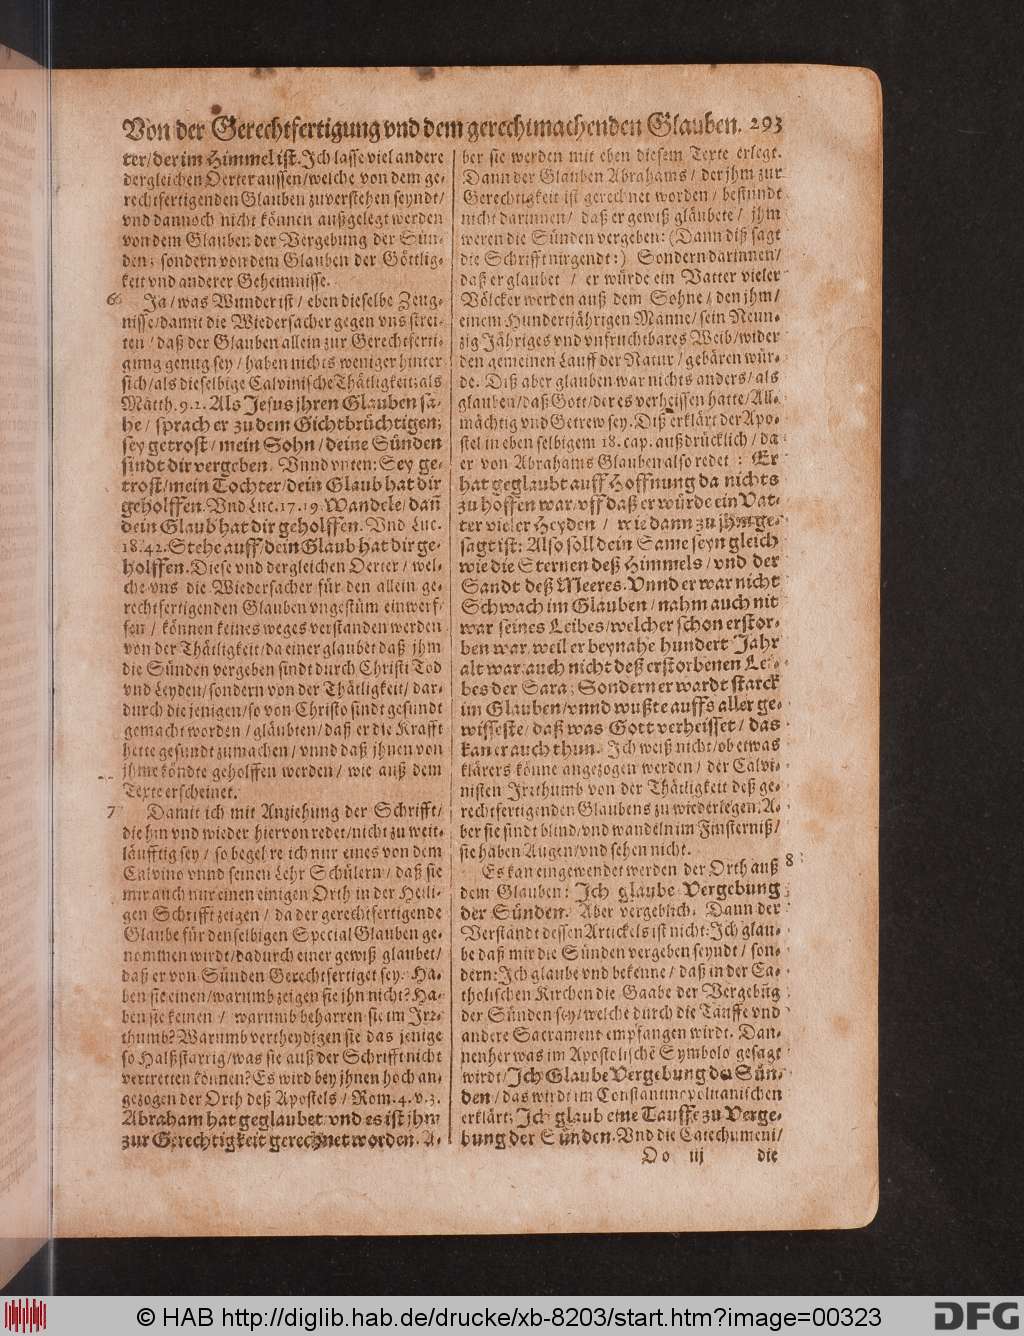 Von der Gerechtfertigung vnd dem gerechtmachenden Glauben. 293
ter/ der im Himmel ist. Ich lasse viel andere
dergleichen Oerter aussen/ welche von dem ge-
rechtfertigenden Glauben zuverstehen seyndt/
vnd dannoch nicht können außgelegt werden
von dem Glauben der Vergebung der Sün-
den; sondern von dem Glauben der Göttlig-
keit vnd anderer Geheimnisse.
66 Ja/ was Wunder ist/ eben dieselbe Zeug-
nisse/ damit die Wiedersacher gegen vns strei-
ten/ daß der Glauben allein zur Gerechtferti-
gung genug sey/ haben nichts weniger hinter
sich/ als dieselbige Calvinische Thätligkeit; als
Matth. 9. 2. Als Jesus jhren Glauben sa-
he/ sprach er zu dem Gichtbrüchtigen;
sey getrost/ mein Sohn/ deine Sünden
sindt dir vergeben. Vnnd vnten: Sey ge-
trost/ mein Tochter/ dein Glaub hat dir
geholffen. Vnd Luc. 17. 19. Wandele/ dañ
dein Glaub hat dir geholffen. Vnd Luc.
18. 42. Stehe auff/ dein Glaub hat dir ge-
holffen. Diese vnd dergleichen Oerter/ wel-
che vns die Wiedersacher für den allein ge-
rechtfertigenden Glauben vngestüm einwerf-
fen/ können keines weges verstanden werden
von der Thätligkeit/ da einer glaubet daß jhm
die Sünden vergeben sindt durch Christi Tod
vnd Leyden/ sondern von der Thätligkeit/ dar-
durch die jenigen/ so von Christo sindt gesundt
gemacht worden/ gläubten/ daß er die Krafft
hette gesundt zumachen/ vnnd daß jhnen von
jhme köndte geholffen werden/ wie auß dem
Texte erscheinet.
7 Damit ich mit Anziehung der Schrifft/
die hin vnd wieder hiervon redet/ nicht zu weit-
läufftig sey/ so begehre ich nur eines von dem
Calvino vnnd seinen Lehr Schülern/ daß sie
mir auch nur einen einigen Orth in der Heili-
gen Schrifft zeigen/ da der gerechtfertigende
Glaube für denselbigen Special Glauben ge-
nommen wirdt/ dadurch einer gewiß glaubet/
daß er von Sünden Gerechtfertiget sey. Ha-
ben sie einen/ warumb zeigen sie jhn nicht? Ha-
ben sie keinen/ warumb beharren sie im Irr-
thumb? Warumb vertheydigen sie das jenige
so Halßstarrig/ was sie auß der Schrifft nicht
vertretten können? Es wird bey jhnen hoch an-
gezogen der Orth deß Apostels/ Rom. 4. v. 3.
Abraham hat geglaubet/ vnd es ist jhm
zur Gerechtigkeit gerechnet worden. A-
ber sie werden mit eben diesem Texte erlegt.
Dann der Glauben Abrahams/ der jhm zur
Gerechtigkeit ist gerechnet worden/ bestundt
nicht darinnen/ daß er gewiß gläubete/ jhm
weren die Sünden vergeben: (Dann diß sagt
die Schrifft nirgendt:) Sondern darinnen/
daß er glaubet/ er würde ein Vatter vieler
Völcker werden auß dem Sohne/ den jhm/
einem Hundertjährigen Manne/ sein Neun-
zig Jähriges vnd vnfruchtbares Weib/ wider
den gemeinen Lauff der Natur/ gebären wür-
de. Diß aber glauben war nichts anders/ als
glauben/ daß Gott/ der es verheissen hatte/ All-
mächtig vnd Getrew sey. Diß erklärt der Apo-
stel in eben selbigem 18. cap. außdrücklich/ da
er von Abrahams Glauben also redet: Er
hat geglaubt auff Hoffnung da nichts
zu hoffen war/ vff daß er würde ein Vat-
ter vieler Heyden/ wie dann zu jhm ge-
sagt ist: Also soll dein Same seyn gleich
wie die Sternen deß Himmels/ vnd der
Sandt deß Meeres. Vnnd er war nicht
Schwach im Glauben/ nahm auch nit
war seines Leibes/ welcher schon erstor-
ben war/ weil er beynahe hundert Jahr
alt war/ auch nicht deß erstorbenen Lei-
bes der Sara; Sondern er wardt starck
im Glauben/ vnnd wußte auffs aller ge-
wisseste/ daß was Gott verheisset/ das
kan er auch thun. Ich weiß nicht/ ob etwas
klärers könne angezogen werden/ der Calvi-
nisten Irrthumb von der Thätligkeit deß ge-
rechtfertigenden Glaubens zu wiederlegen. A-
ber sie sindt blind/ vnd wandeln im Finsterniß/
sie haben Augen/ vnd sehen nicht.
Es kan eingewendet werden der Orth auß 8
dem Glauben: Ich glaube Vergebung
der Sünden. Aber vergeblich. Dann der
Verstandt dessen Artickels ist nicht: Ich glau-
be daß mir die Sünden vergeben seyndt/ son-
dern: Ich glaube vnd bekenne/ daß in der Ca-
tholischen Kirchen die Gaabe der Vergebũg
der Sünden sey/ welche durch die Tauffe vnd
andere Sacrament empfangen wirdt. Dan-
nenher was im Apostolischē Symbolo gesagt
wirdt/ Ich Glaube Vergebung der Sün-
den/ das wirdt im Constantinopolitanischen
erklärt; Ich glaub eine Tauffe zu Verge-
bung der Sünden. Vnd die Catechumeni/
Oo iij die
© HAB http://diglib.hab.de/drucke/xb-8203/start.htm?image=00323
DFG